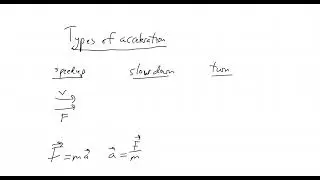 Types of acceleration
speedup slowdown turn
V
F
F⃗ = ma⃗ a⃗ = F⃗/m